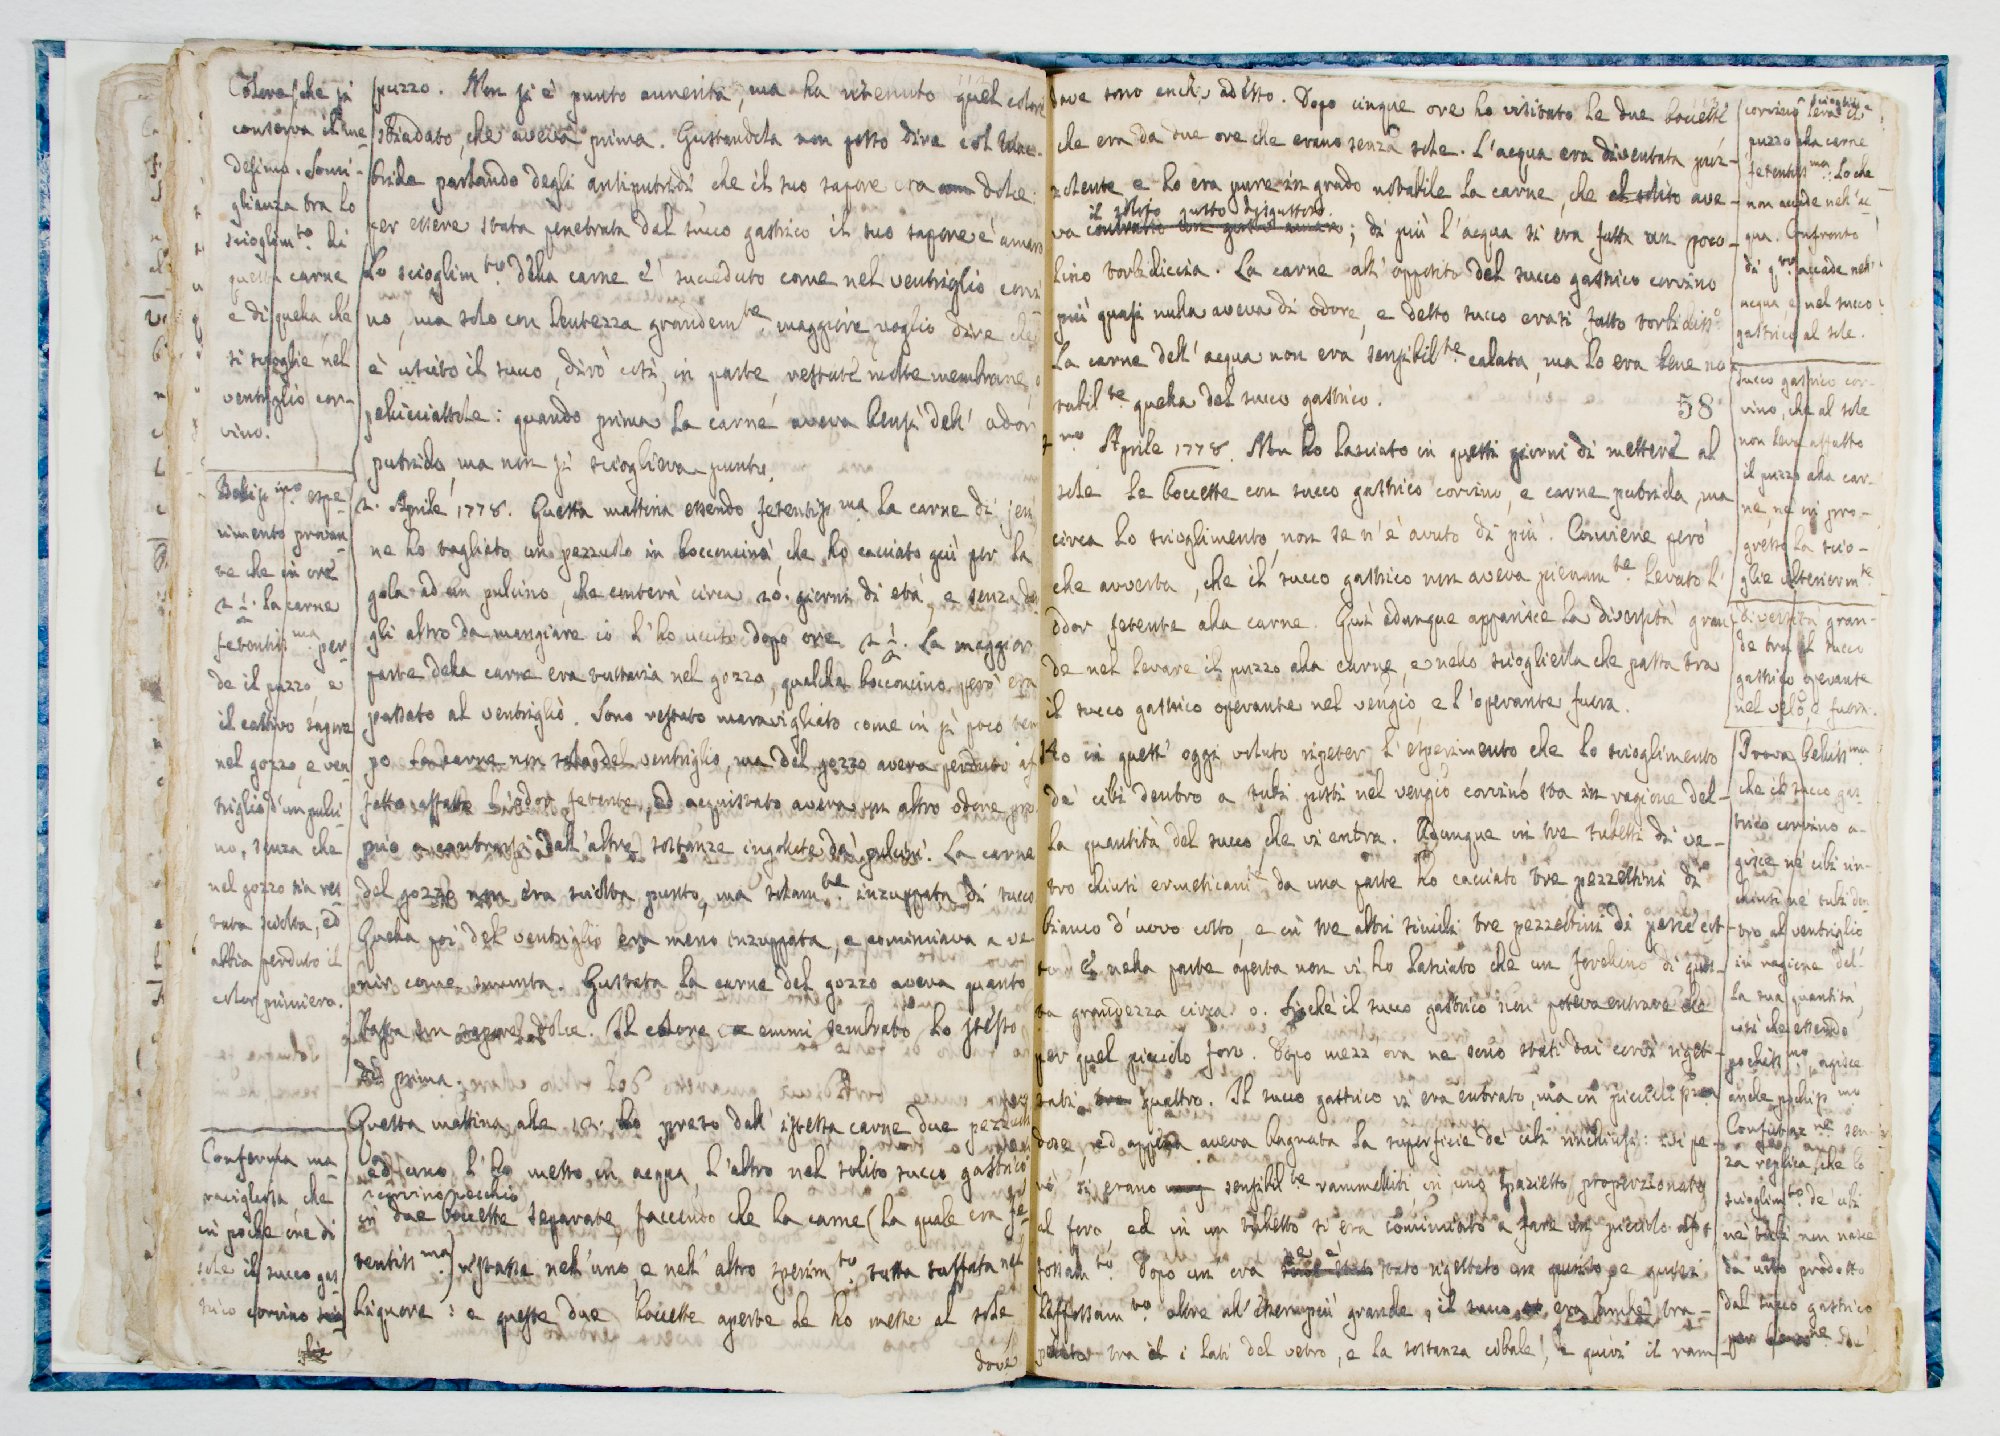 Colore, che si
conserva il me-
desimo. Somi-
glianza tra lo
scioglim.to di
questa carne
e di quella che
si scioglie nel
ventriglio cor-
vino.
Bellis.mo espe-
rimento provan-
te che in ore
2 1/2 la carne
fetentis.ma per-
de il puzzo, e
il cattivo sapore
nel gozzo, e ven-
triglio d'un pulci-
no, senza che
nel gozzo sia res-
tata sciolta, ed
abbia perduto il
color primiero.
Conferma ma-
ravigliosa, che
in poche ore di
sole il succo gas-
trico corvino
puzzo. Non si è punto annerita, ma ha ritenuto quel colore
sbiadato, che aveva prima. Gustandola non posso dire col Mac-
bride parlando degli antiputridi, che il suo sapore era dolce.
per essere stata penetrata dal succo gastrico il suo sapore è amaro
Lo scioglim.to della carne è succeduto come nel ventriglio corvi-
no, ma solo con lentezza grandem.te maggiore, voglio dire che
è uscito il succo, dirò così, in parte, restate molte membrane, o
pellicciattole: quando prima la carne aveva bensì dell' odor
putrido, ma non si scioglieva punto.
2. Aprile 1778. Questa mattina essendo fetentis.ma la carne di jeri
ne ho tagliato un pezzullo in bocconcini, che ho cacciato giù per la
gola ad un pulcino, che conterà circa 20. giorni di età, e senza
gli altro da mangiare io l'ho ucciso dopo ore 2 1/2. La maggior
parte della carne era tuttavia nel gozzo, qualche bocconcino però era
passato al ventriglio. Sono restato maravigliato come in sì poco tem-
po la carne non solo del ventriglio, ma del gozzo aveva perduto af-
fatto affatto l'odor fetente, ed acquistato aveva un altro odore pro-
prio a contrarsi dall'altre sostanze ingolate da' pulcini. La carne
del gozzo non era sciolta punto, ma solam.te inzuppata di succo
Quella poi del ventriglio era meno inzuppata, e cominciava a ve-
nir come smunta. Gustata la carne del gozzo aveva quanto
basta un sapore dolce. Il colore emmi sembrato lo stesso
di prima.
Questa mattina alle 12. ho preso dall' istessa carne due pezzetti
ed uno l'ho messo in acqua, l'altro nel solito succo gastrico
corvino vecchio
in due boccette separate, facendo che la carne (la quale era fe-
tentis.ma) restasse nell'uno, e nell' altro sperim.to tutta tuffata nel
liquore: e queste due boccette aperte le ho messe al sole
dove
dove sono anche adesso. Dopo cinque ore ho visitato le due boccette
che era da due ore che erano senza sole. L'acqua era diventata puz-
zolente e lo era pure in grado notabile la carne, che al solito ave-
il solito gusto disgustoso
va contratto un gusto amaro; di più l'acqua si era fatta un poco-
lino torbidiccia. La carne all' opposito del succo gastrico corvino
più quasi nulla aveva di odore, e detto succo erasi fatto torbidis.o
La carne dell' acqua non era sensibil.te calata, ma lo era bene no-
tabil.te quella del succo gastrico.
58
Aprile 1778. Non ho lasciato in questi giorni di mettere al
sole le boccette con succo gastrico corvino, e carne putrida, ma
circa lo scioglimento non se n'è avuto di più. Conviene però
che avverta, che il succo gastrico non aveva pienam.te levato l'
odor fetente alla carne. Quì adunque apparisce la diversità gran-
de nel levare il puzzo alla carne, e nello scioglierla che passa tra
il succo gastrico operante nel vengio, e l'operante fuora.
Ho in quest' oggi voluto ripeter l' esperimento che lo scioglimento
de' cibi dentro a tubi posti nel vengio corvino sta in ragione del-
la quantità del succo che vi entra. Adunque in tre tubetti di ve-
tro chiusi ermeticam.te da una parte ho cacciato tre pezzettini di
bianco d' uovo cotto, e in tre altri simili tre pezzettini di pesce cot-
to e nella parte aperta non vi ho lasciato che un forellino di ques-
ta grandezza circa o. sicchè il succo gastrico non poteva entrare che
per quel picciolo foro. Dopo mezz ora ne sono stati dai corvi riget-
tati quattro. Il succo gastrico vi era entrato, ma in picciolis.ma
dose, ed appena aveva bagnata la superficie de' cibi rinchiusi: essi pe-
rò si erano sensibil.te rammolliti in uno spazietto proporzionato
al foro, ed in un tubetto si era cominciato a fare un picciolo af-
fossam.to. Dopo un' ora stato rigettato un quinto, e questi
l'affossam.to oltre all' essere più grande, il succo era anche tra-
pelato tra i lati del vetro, e la sostanza cibale, e quivi il ram-
corvino leva il
puzzo alla carne
fetentis.ma. Lo che
non accade nell' ac-
qua. Confronto
di q.to accade nell'
acqua, e nel succo
gastrico al sole.
Succo gastrico cor-
vino, che al sole
non leva affatto
il puzzo alla car-
ne, ne in pro-
gresso la scio-
glie ulteriorm.te
diversità gran-
de tra il succo
gastrico operante
nel vel.o, o fuora.
Prova bellis.ma
che il succo gas-
trico corvino a-
gisce ne' cibi rin-
chiusi ne' tubi den-
tro al ventriglio
in ragione del-
la sua quantità,
così che essendo
pochis.mo, agisce
anche pochis.mo
Confutaz.ne sen-
za replica, che lo
scioglim.to de' cibi
ne' tubi non nasce
da urto prodotto
dal succo gastrico